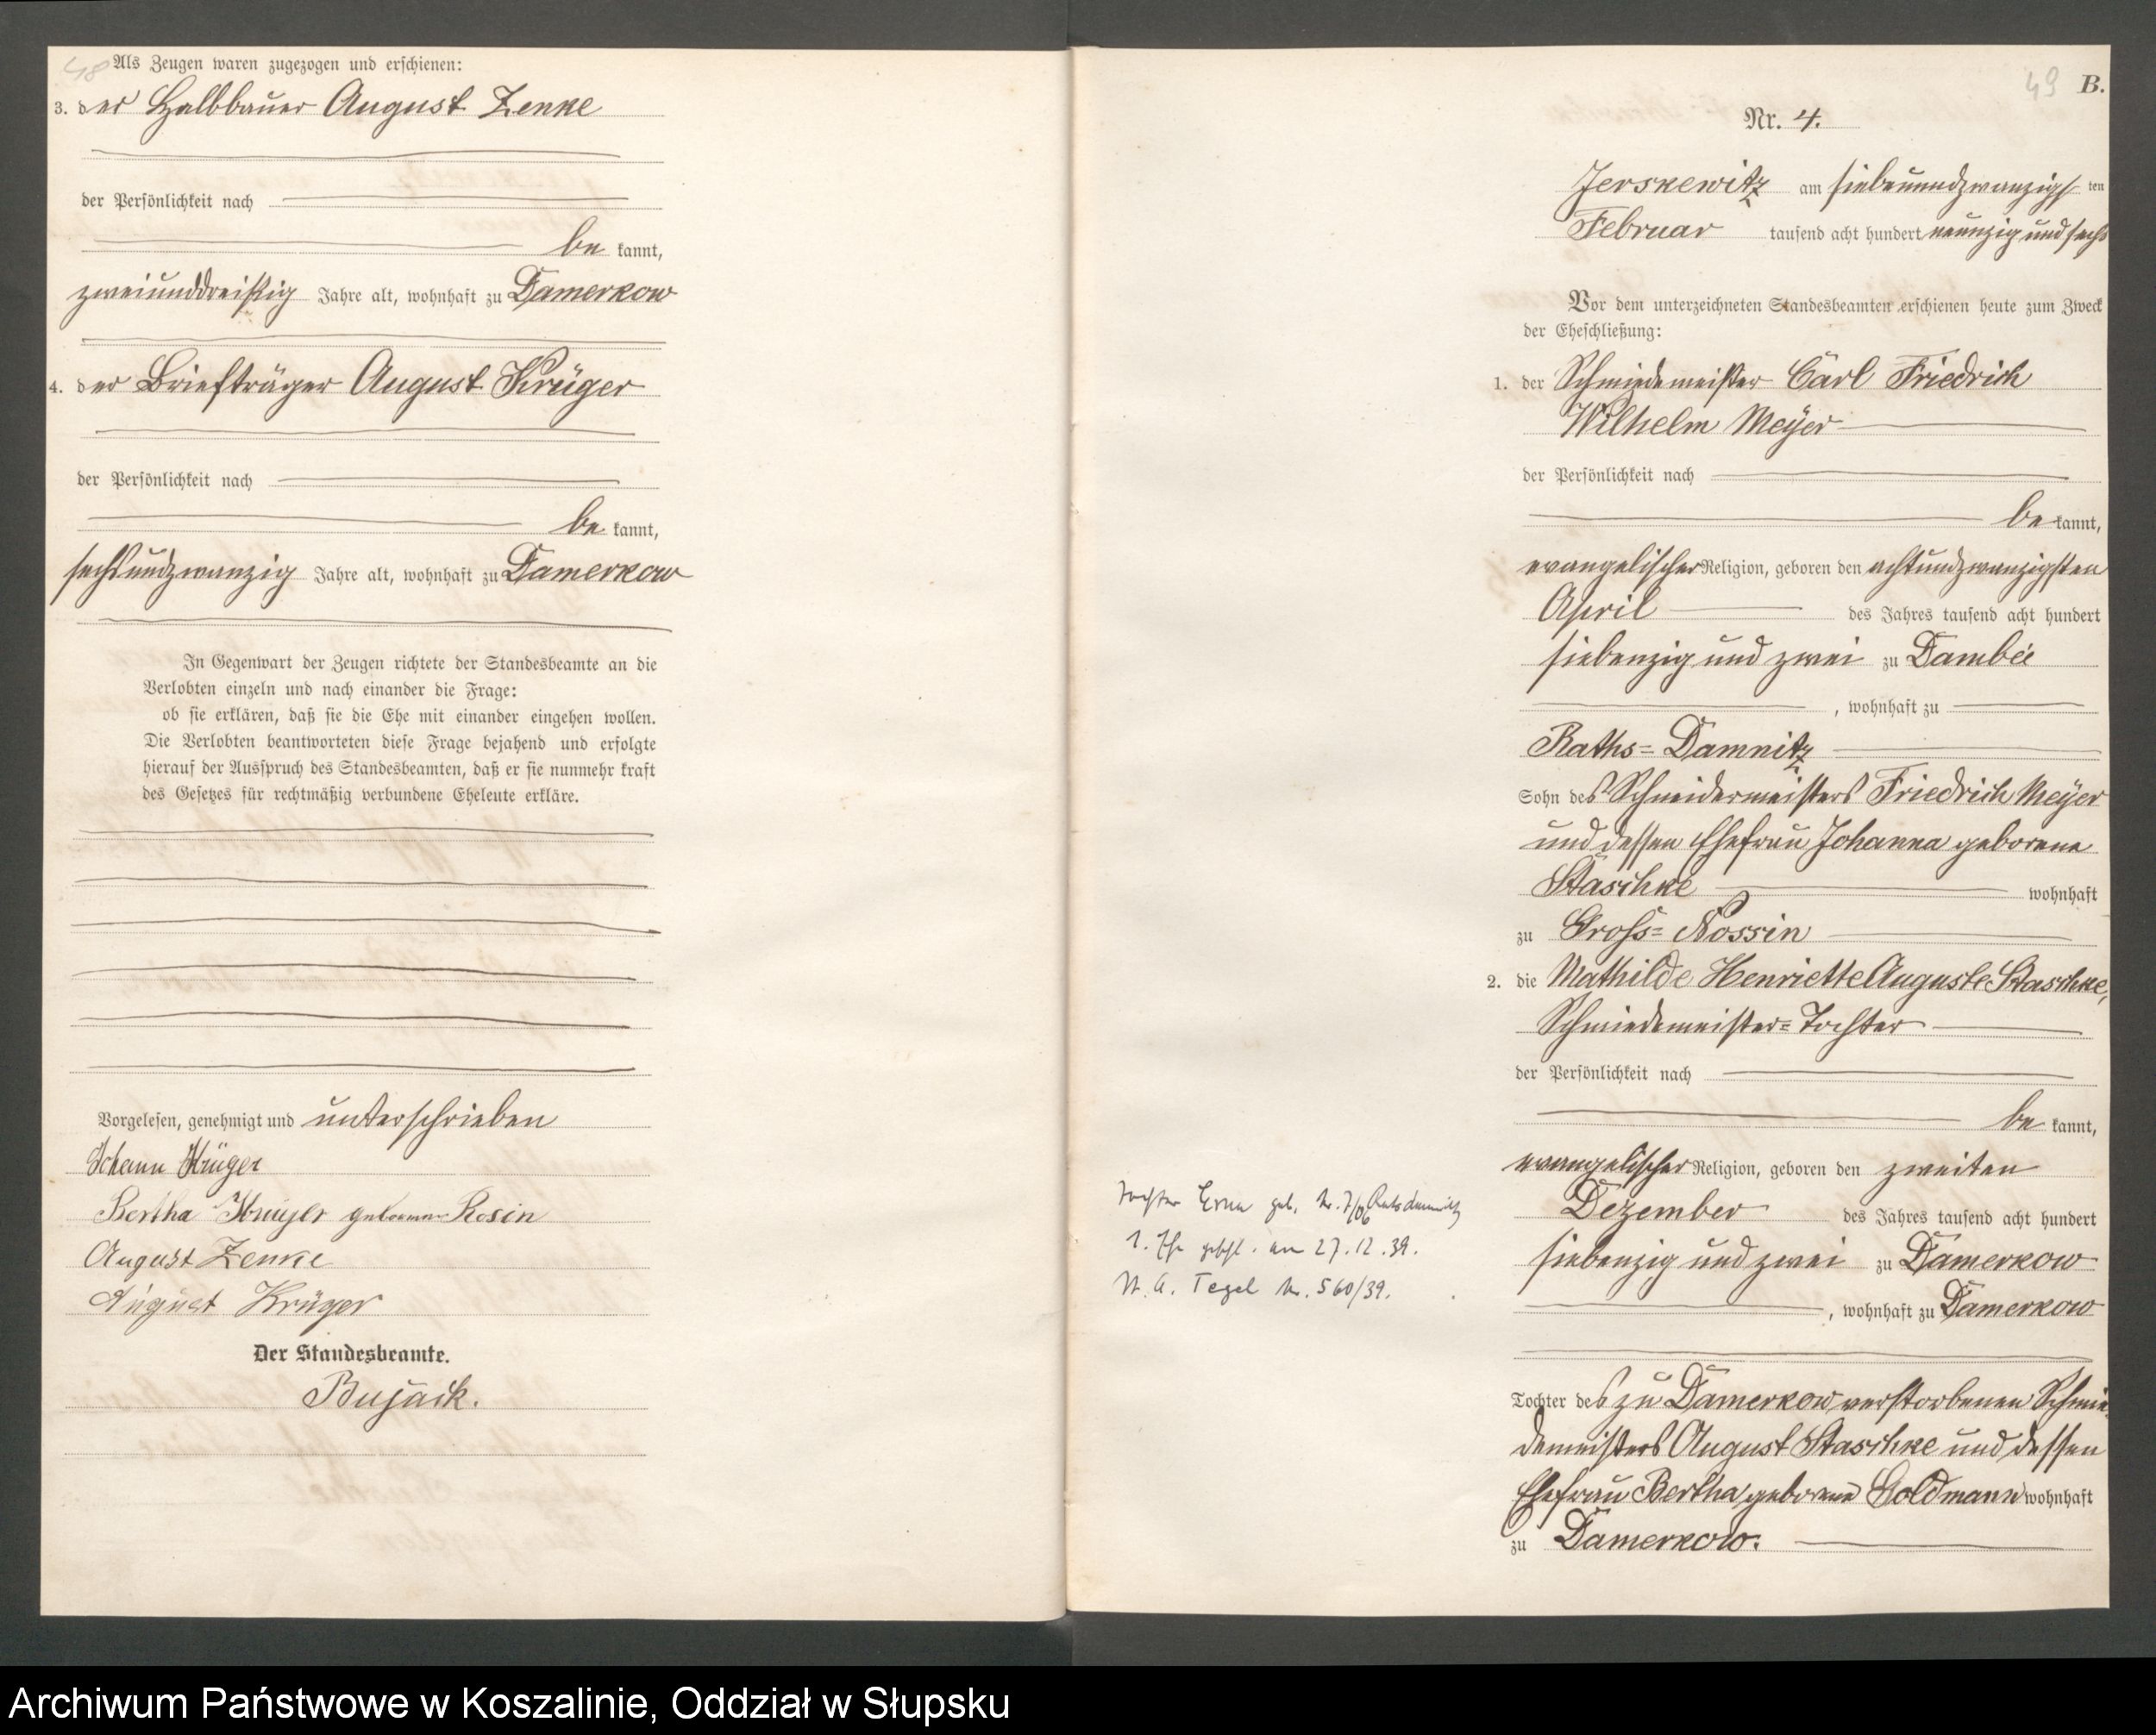 48
Als Zeugen waren zugezogen und erschienen:
3. der Halbbauer August Zenke
der Persönlichkeit nach
be kannt,
zweiunddreißig Jahre alt, wohnhaft zu Damerkow
4. der Briefträger August Krüger
der Persönlichkeit nach
be kannt,
sechsundzwanzig Jahre alt, wohnhaft zu Damerkow
In Gegenwart der Zeugen richtete der Standesbeamte an die
Verlobten einzeln und nach einander die Frage:
ob sie erklären, daß sie die Ehe mit einander eingehen wollen.
Die Verlobten beantworteten diese Frage bejahend und erfolgte
hierauf der Ausspruch des Standesbeamten, daß er sie nunmehr kraft
des Gesetzes für rechtmäßig verbundene Eheleute erkläre.
Vorgelesen, genehmigt und unterschrieben
Johann Krüger
Bertha Krüger geborene Rosin
August Zenke
August Krüger
Der Standesbeamte.
Bujack.
49 B.
Nr. 4.
Jerskewitz am siebenundzwanzigs ten
Februar tausend acht hundert neunzig und sechs
Vor dem unterzeichneten Standesbeamten erschienen heute zum Zweck
der Eheschließung:
1. der Schmiedemeister Carl Friedrich
Wilhelm Meyer
der Persönlichkeit nach
be kannt,
evangelischer Religion, geboren den achtundzwanzigsten
April des Jahres tausend acht hundert
siebenzig und zwei zu Dambée
, wohnhaft zu
Raths=Damnitz
Sohn des Schneidermeisters Friedrich Meyer
und dessen Ehefrau Johanna geborene
Staschke wohnhaft
zu Gross=Nossin
2. die Mathilde Henriette Auguste Staschke,
Schmiedemeister=Tochter
der Persönlichkeit nach
be kannt,
evangelischer Religion, geboren den zweiten
Dezember des Jahres tausend acht hundert
siebenzig und zwei zu Damerkow
, wohnhaft zu Damerkow
Tochter des zu Damerkow verstorbenen Schmie
demeisters August Staschke und dessen
Ehefrau Bertha geborene Goldmann wohnhaft
zu Damerkow.
Tochter Erna geb. Nr. 7/06 Ratsdamnitz
1. Eh. geschl. am 27.12.39.
St. A. Tegel Nr. 560/39.
Archiwum Państwowe w Koszalinie, Oddział w Słupsku